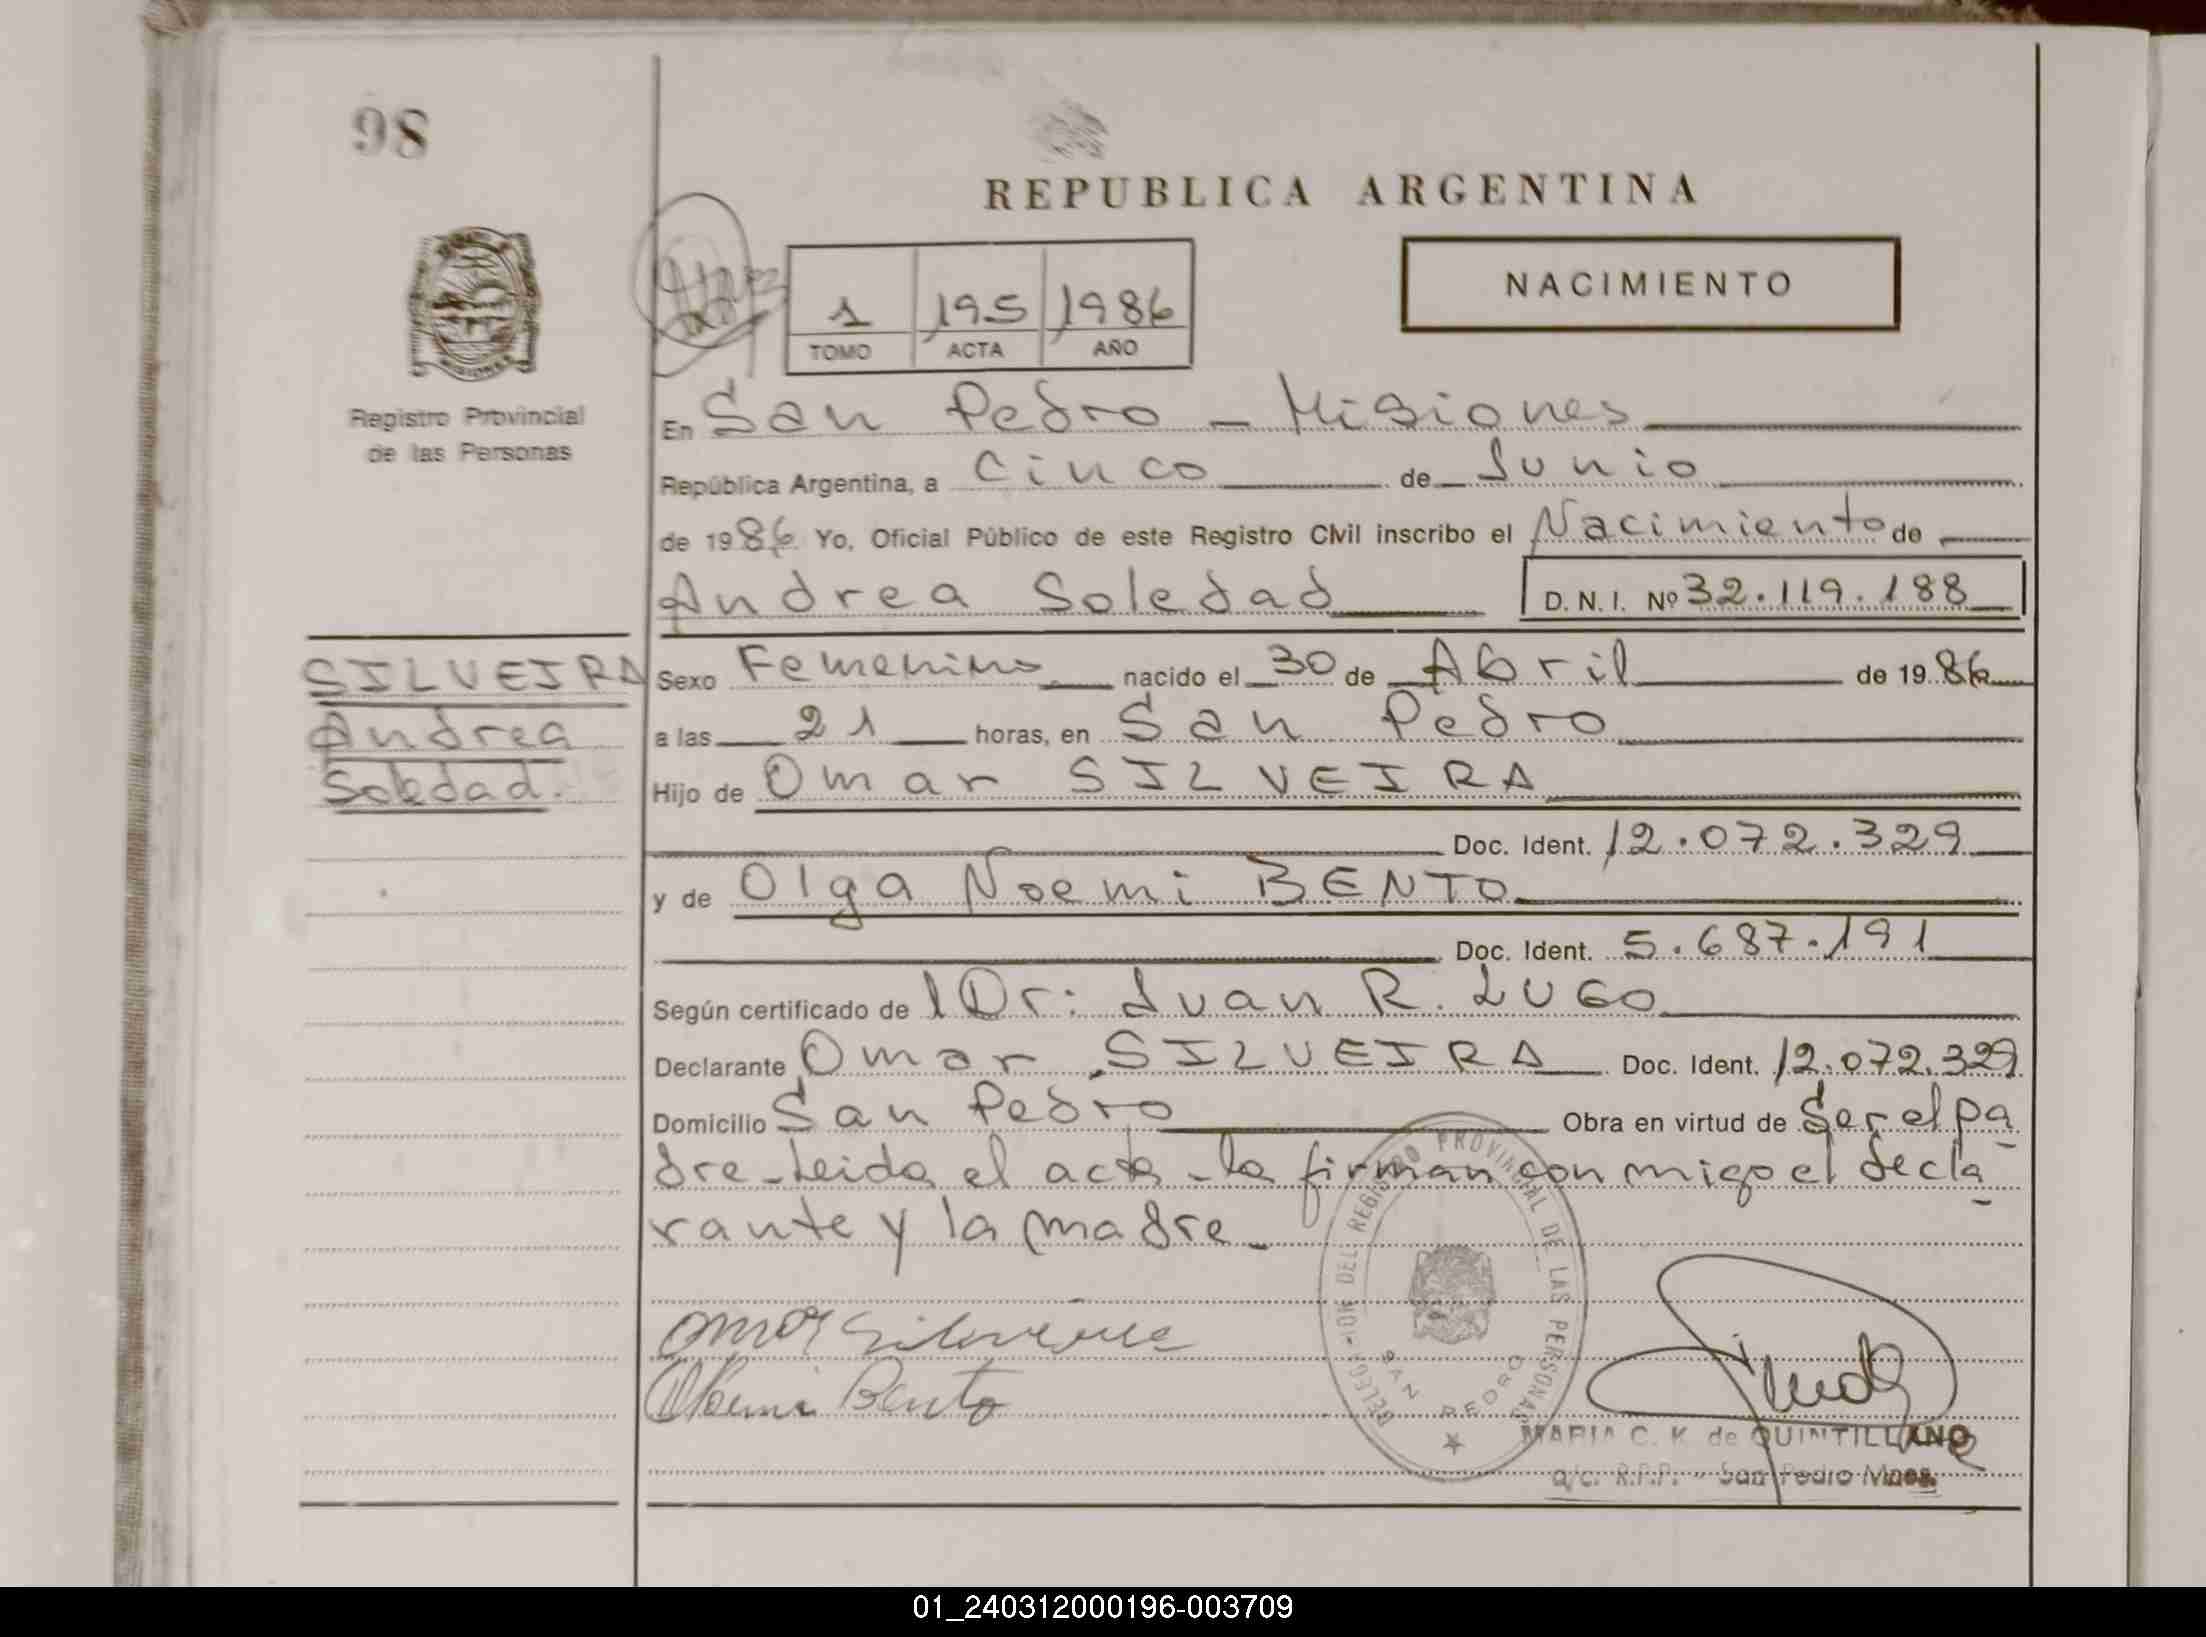 98
REPUBLICA ARGENTINA
NACIMIENTO
1 195 1986
TOMO ACTA AÑO
Registro Provincial
de las Personas
En San Pedro - Misiones
República Argentina, a Cinco de Junio
de 1986 Yo, Oficial Público de este Registro Civil inscribo el Nacimiento de
Andrea Soledad D.N.I. Nº 32.119.188
SILVEIRA
Andrea
Soledad.
Sexo Femenino nacido el 30 de Abril de 1986
a las 21 horas, en San Pedro
Hijo de Omar SILVEIRA
Doc. Ident. 12.072.329
y de Olga Noemi BENTO
Doc. Ident. 5.687.191
Según certificado de l Dr: Juan R. LUGO
Declarante Omar SILVEIRA Doc. Ident. 12.072.329
Domicilio San Pedro Obra en virtud de Ser el pa
dre - Leida el acta - la firman con migo el decla
rante y la madre -
Omar Silveira
Noemi Bento
DELEGACION DEL REGISTRO PROVINCIAL DE LAS PERSONAS
SAN PEDRO
MARIA C. K. de QUINTILLANO
a/c. R.P.P. - San Pedro Mnes.
01_240312000196-003709